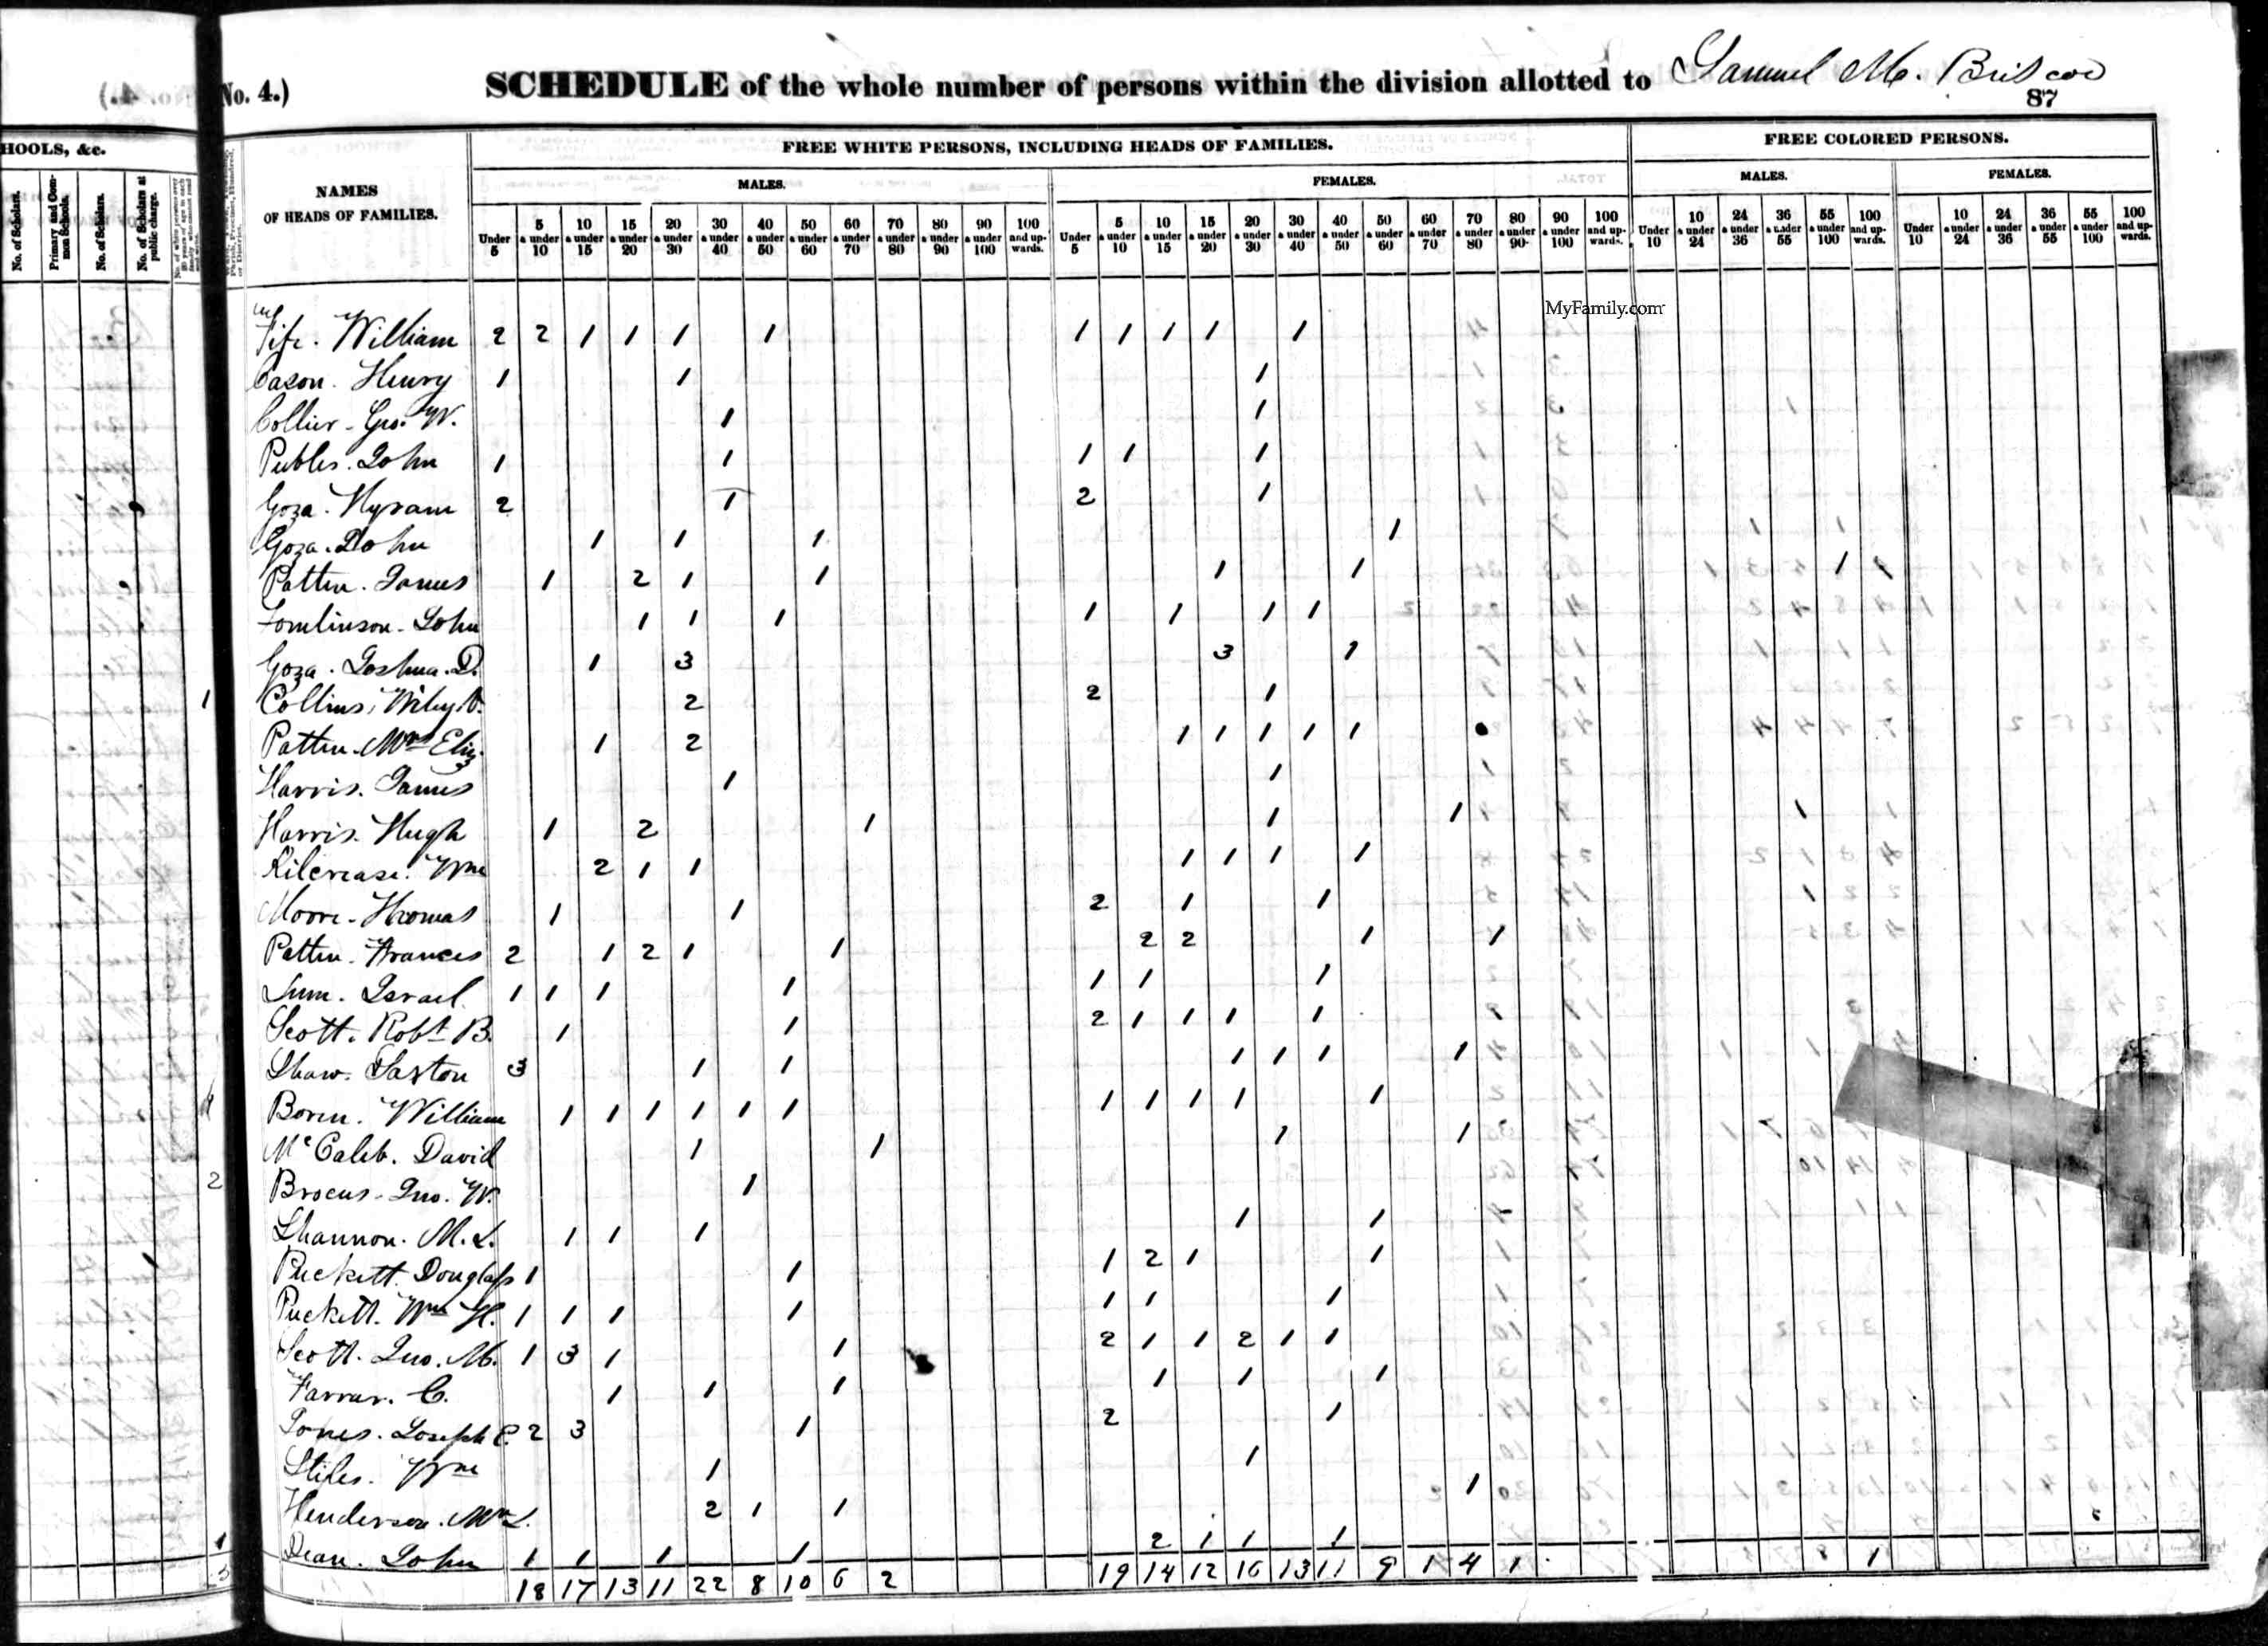 No. 4.)
SCHEDULE of the whole number of persons within the division allotted to Samuel M. Briscoe
87
HOOLS, &c.
No. of Scholars.
Primary and Common Schools.
No. of Scholars.
No. of Scholars at public charge.
NAMES
OF HEADS OF FAMILIES.
FREE WHITE PERSONS, INCLUDING HEADS OF FAMILIES.
FREE COLORED PERSONS.
MALES.
FEMALES.
MALES.
FEMALES.
Under 5
5 & under 10
10 & under 15
15 & under 20
20 & under 30
30 & under 40
40 & under 50
50 & under 60
60 & under 70
70 & under 80
80 & under 90
90 & under 100
100 and upwards.
Under 5
5 & under 10
10 & under 15
15 & under 20
20 & under 30
30 & under 40
40 & under 50
50 & under 60
60 & under 70
70 & under 80
80 & under 90
90 & under 100
100 and upwards.
Under 10
10 & under 24
24 & under 36
36 & under 55
55 & under 100
100 and upwards.
Under 10
10 & under 24
24 & under 36
36 & under 55
55 & under 100
100 and upwards.
MyFamily.com
Fife. William 2 2 1 1 1 1 1 1 1 1 1
Cason. Henry 1 1 1
Collier. Geo. W. 1 1
Peebles. John 1 1 1 1 1
Goza. Hyram 2 1 2 1
Goza. John 1 1 1 1
Patten. James 1 2 1 1 1 1 1
Tomlinson. John 1 1 1 1 1 1 1
Goza. Joshua. D. 1 3 3 1
Collins, Wiley V. 2 2 1
Patten. Mrs Eliz. 1 2 1 1 1 1 1
Harris. James 1 1
Harris. Hugh 1 2 1 1 1 1
Kilcrease. Wm 2 1 1 1 1 1 1
Moore. Thomas 1 1 2 1 1
Patten. Frances 2 1 2 1 1 2 2 1 1
Lum. Israel 1 1 1 1 1 1 1
Scott. Robt B. 1 1 2 1 1 1 1
Shaw. Saxton 3 1 1 1 1 1 1
Boren. William 1 1 1 1 1 1 1 1 1 1 1
McCaleb. David 1 1 1 1
Brocus. Jno. W. 1
Shannon. M. L. 1 1 1 1 1
Puckett. Douglass 1 1 1 2 1 1
Puckett. Wm H. 1 1 1 1 1 1 1
Scott. Jno. M. 1 3 1 1 2 1 1 2 1 1
Farrar. C. 1 1 1 1 1 1
Jones. Joseph C. 2 3 1 2 1
Stiles. Wm 1 1
Henderson. Mrs L. 2 1 1 1
Dean. John 1 1 1 1 2 1 1 1
18 17 13 11 22 8 10 6 2 19 14 12 16 13 11 9 1 4 1 1